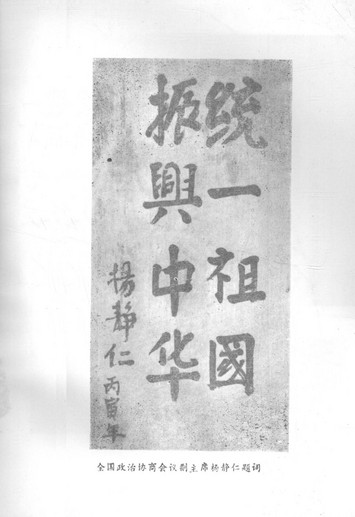 统一祖國
振興中华
楊静仁
丙寅年
全国政治协商会议副主席杨静仁题词